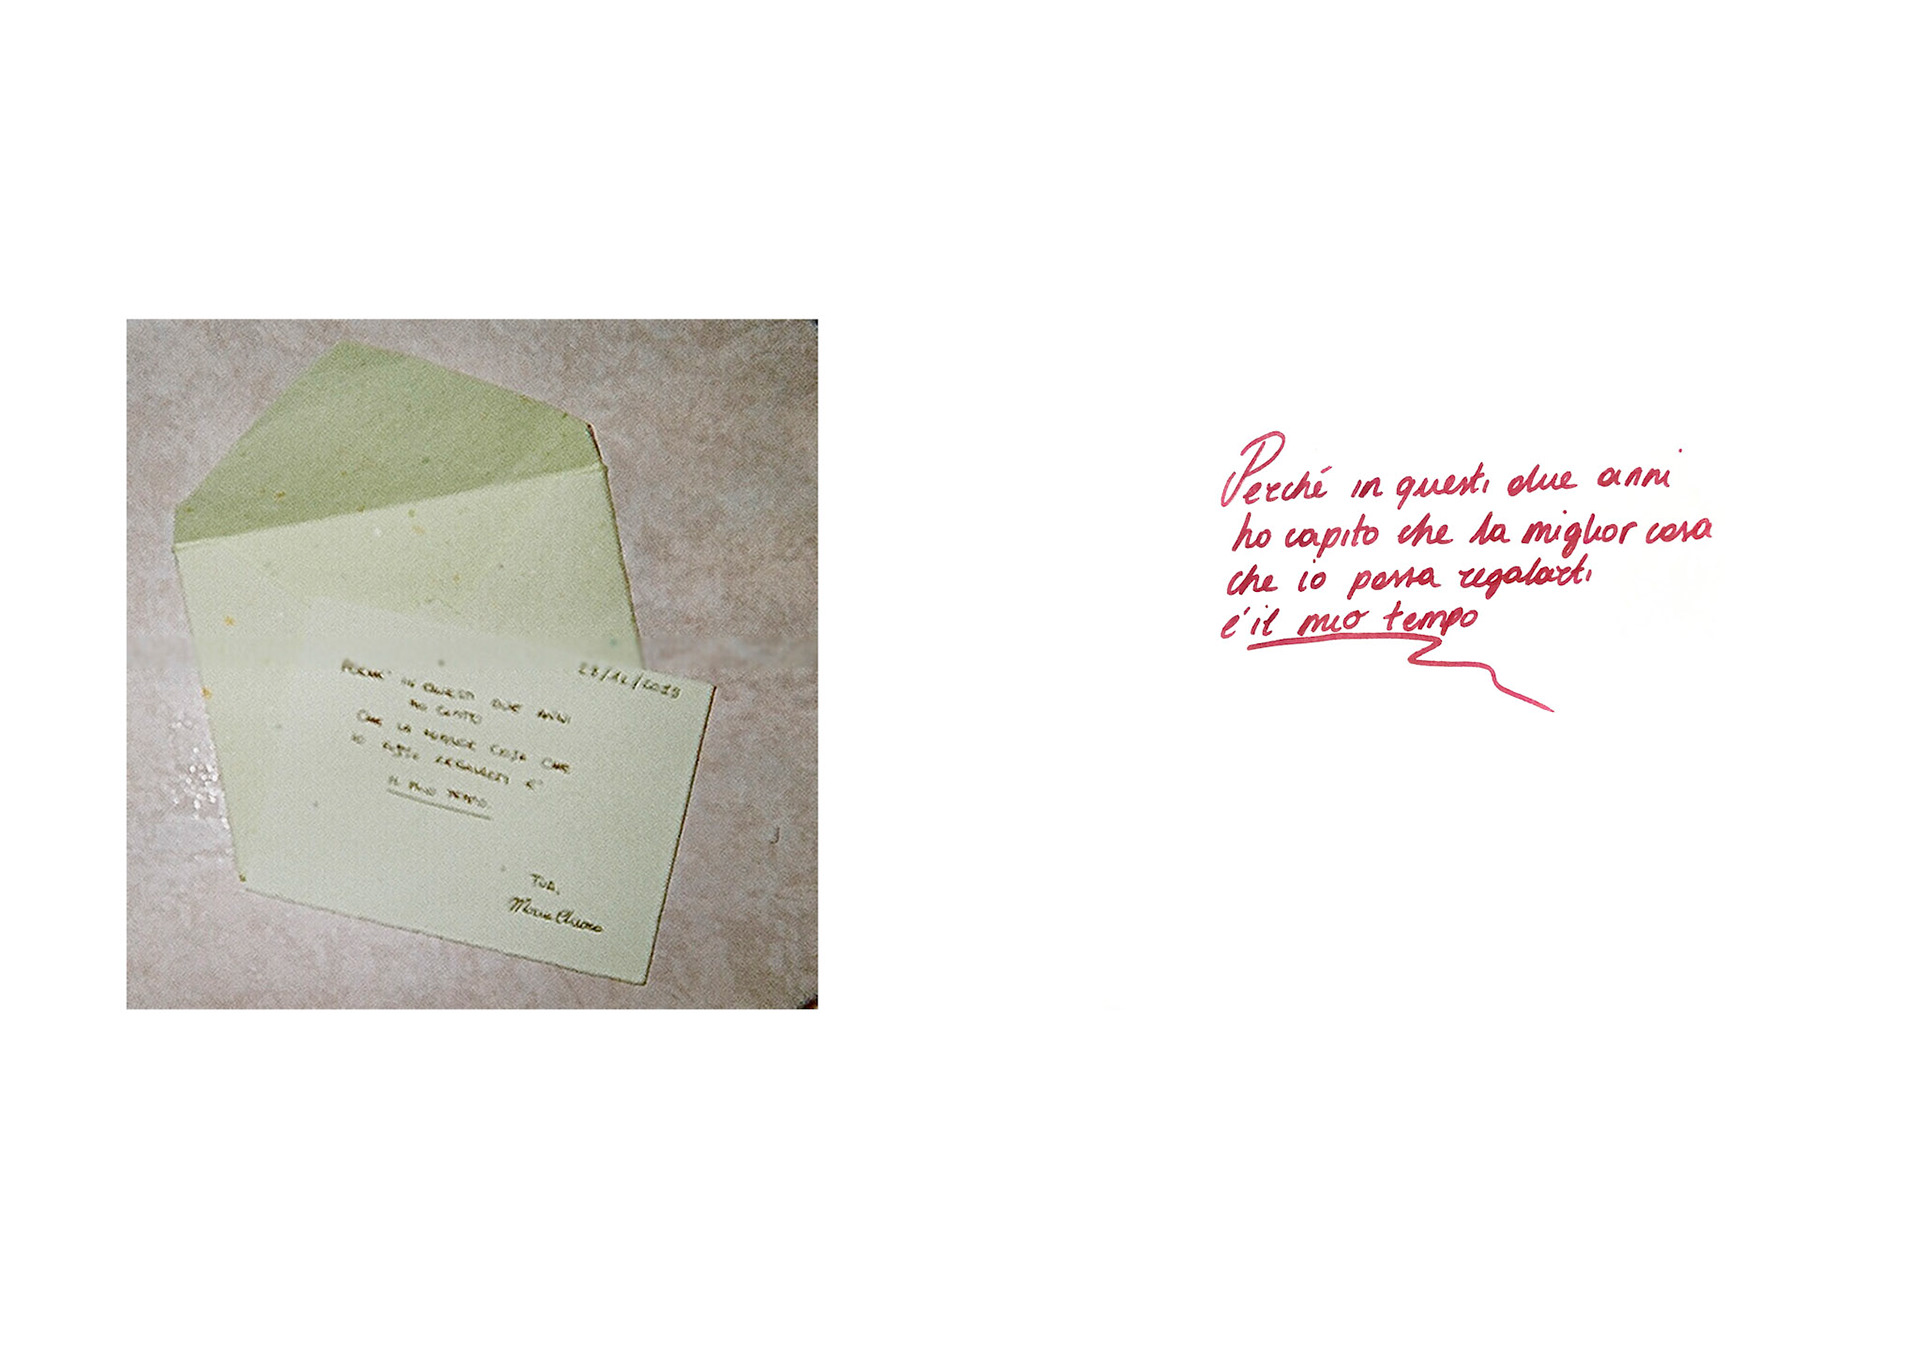 28/12/2019
PERCHE' IN QUESTI DUE ANNI
HO CAPITO
CHE LA MIGLIOR COSA CHE
IO POSSA REGALARTI E'
IL MIO TEMPO
TUA,
Maria Chiara
Perché in questi due anni
ho capito che la miglior cosa
che io possa regalarti
é il mio tempo